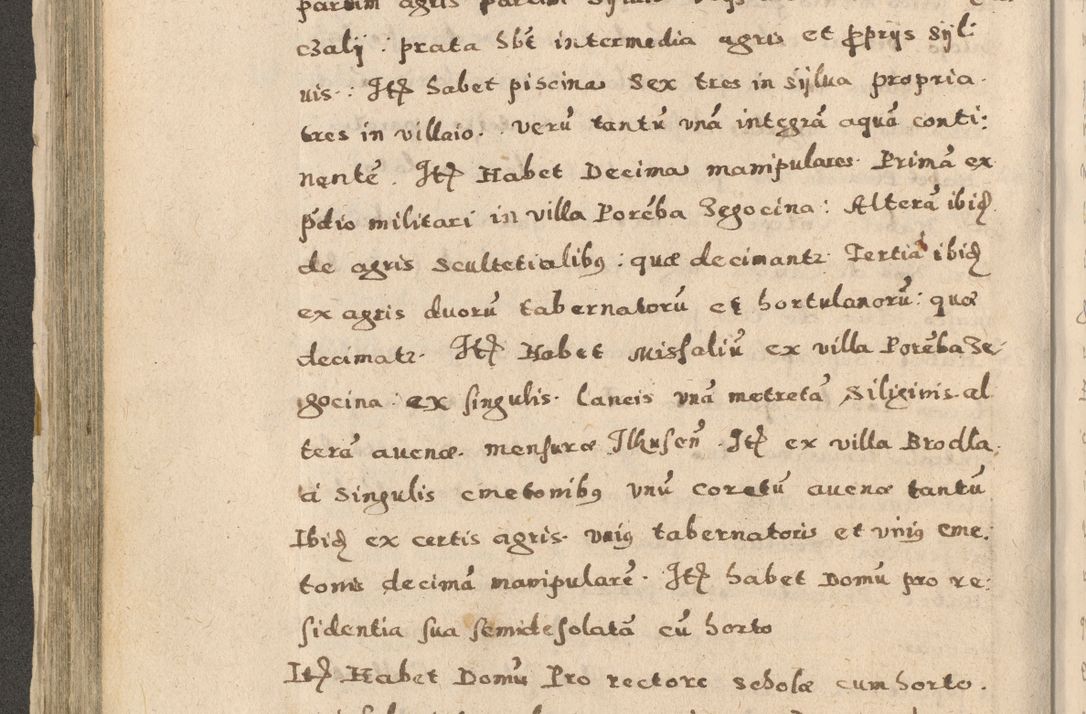 partim agris partim
czalij : prata hñt intermedia agris et ꝓprijs syl:
uis : Itẽ habet piscinas sex tres in sijlua propria.
tres in villaio. Verũ tantũ vnã integrã aquã conti:
nentẽ. Itẽ Habet Decimas manipulares. Primã ex
p̃dio militari in villa Porẽba Zegocina : Alterã ibiđ
de agris scultetialibꝫ : quæ decimantr Tertiã ibiđ
ex agris duorũ tabernatorũ et hortulanorũ : quæ
decimatr. Itẽ Habet Missaliũ ex villa Porẽba Ze
gocina : ex singulis. laneis vnã metretã Siliginis. al
terã auenæ. mensuræ Ilkuseñ. Itẽ ex villa Brodla.
ci singulis cmetonibꝫ vnũ coretũ auenæ tantũ
Ibiđ ex certis agris. vniꝫ tabernatoris et vniꝫ cme:
tonis decimã manipularẽ. Itẽ habet Domũ pro re:
sidentia sua semidesolatã cũ horto
Itẽ Habet Domũ Pro rectore scholæ cum horto.